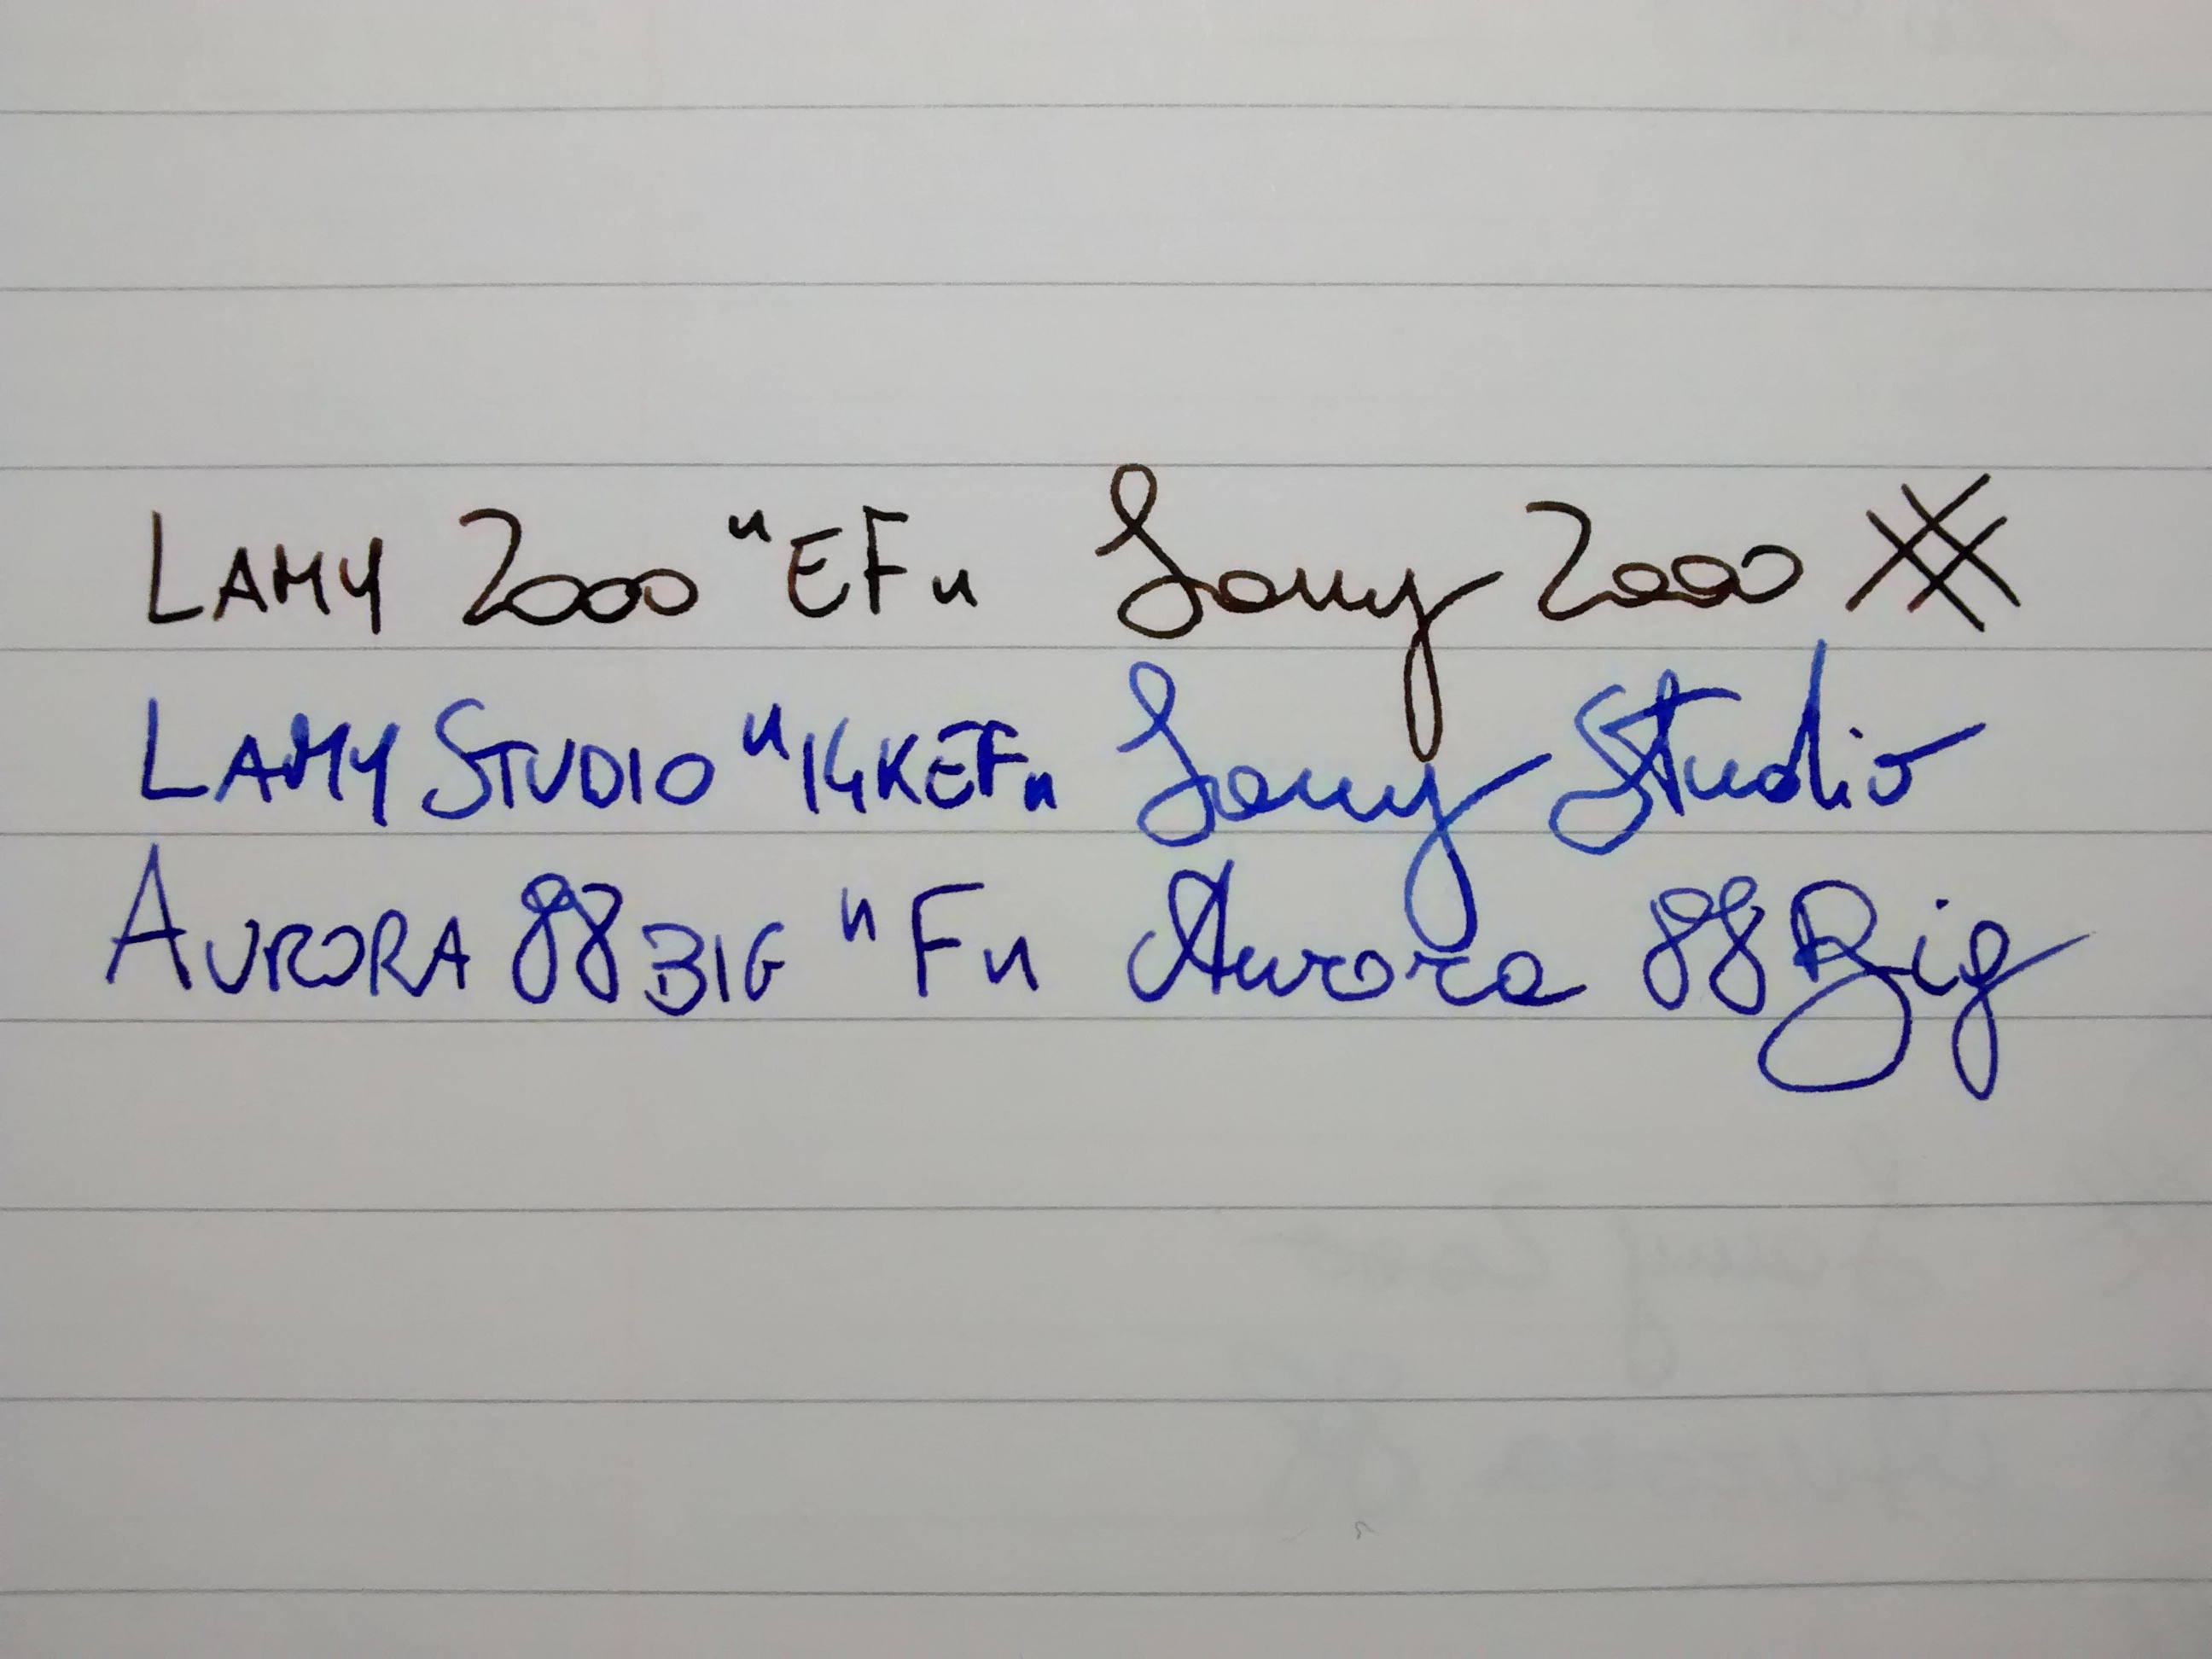 LAMY 2000 "EF" Lamy 2000
LAMY STUDIO "14K EF" Lamy Studio
AURORA 88 BIG "F" Aurora 88 Big